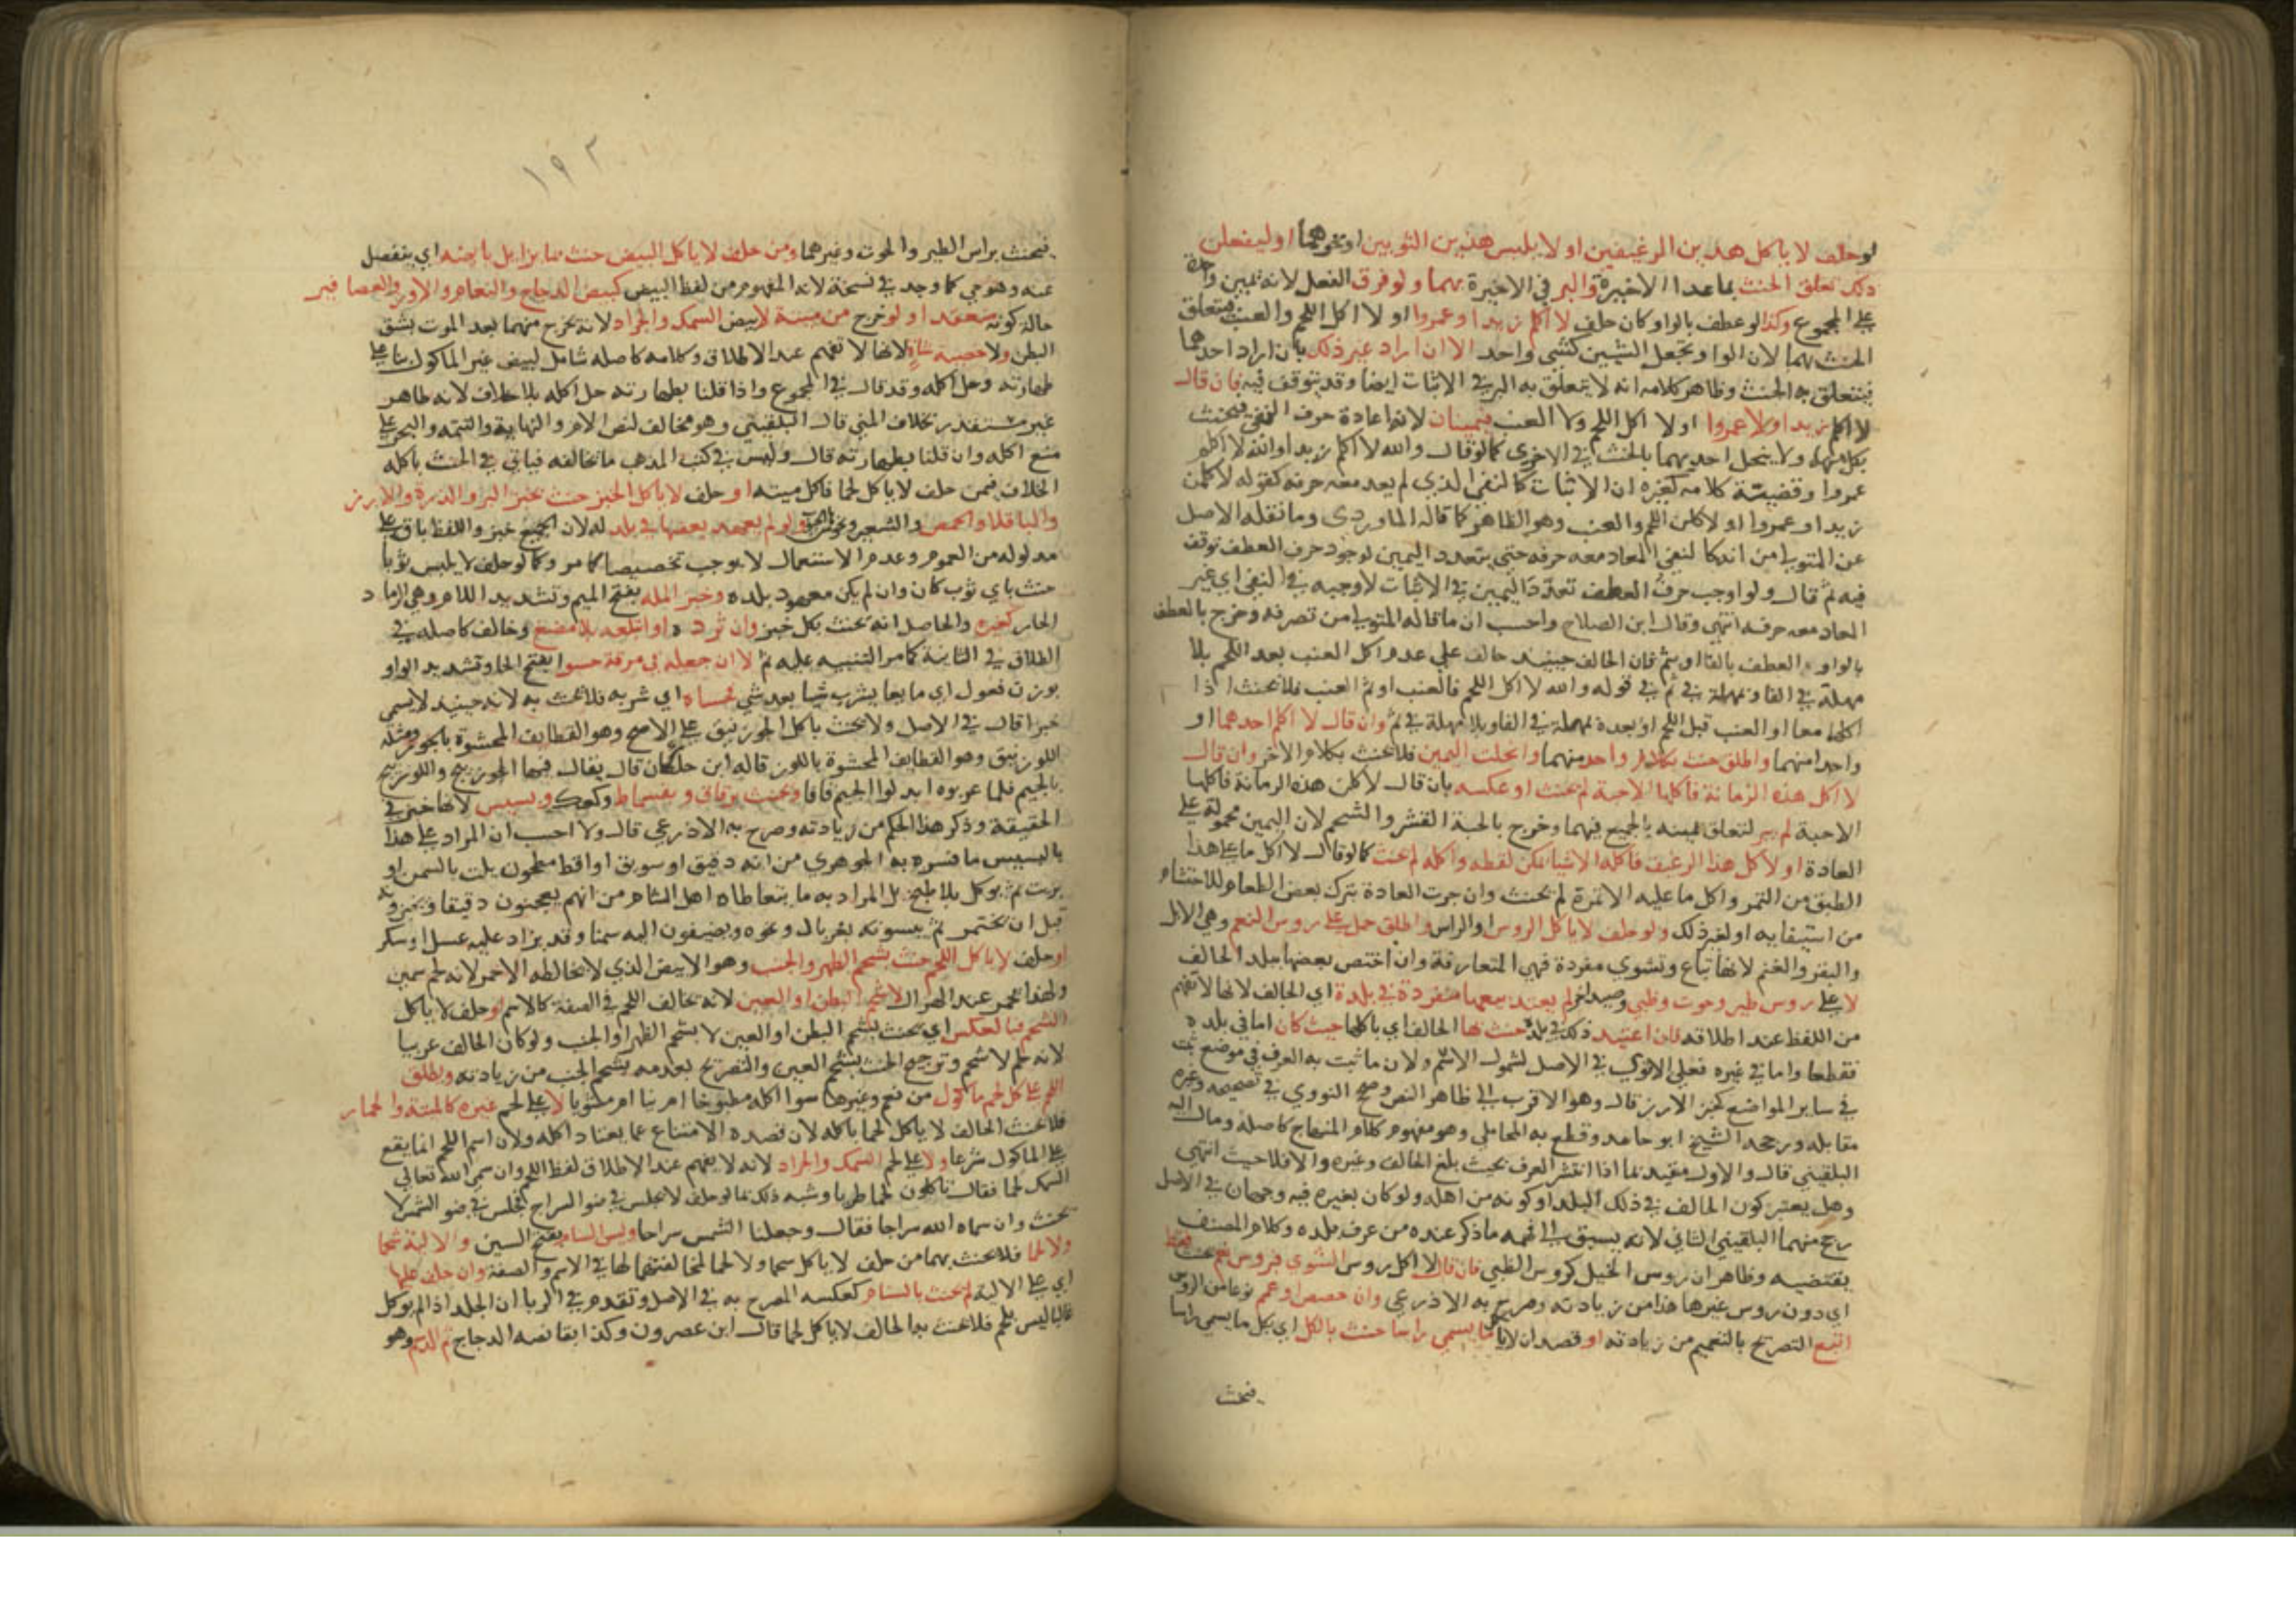 لو حلف لا ياكل هدين الرغيفين او لا يلبس هذين الثوبين او نحوهما او ليفعلن
ذلك تعلق الحنث بما عدا الاخيرة والبر في الاخيرة بهما ولو فرق الفعل لانه يمين واحدة
على المجموع وكذا لو عطف بالواو كان حلف لا اكلم زيدا وعمروا او لا اكل اللحم والعنب فيتعلق
الحنث بهما لان الواو تجعل الشيين كشي واحد الا ان اراد غير ذلك بان اراد احدهما
فيتعلق به الحنث وظاهر كلامه انه لا يتعلق به البر في الاثبات ايضا وقد يتوقف فيه فان قال
لا اكلم زيدا ولا عمروا او لا اكل اللحم ولا العنب فيمينان لان اعادة حرف النفي فيحنث
بكل منهما ولا ينحل احديهما بالحنث في الاخرى كما لو قال والله لا اكلم زيدا والله لا اكلم
عمروا وقضية كلامه كغيره ان الاثبات كالنفي الذي لم يعد معه حرفه كقوله لاكلمن
زيدا وعمروا او لاكلن اللحم والعنب وهو الظاهر كما قاله الماوردي وما نقله الاصل
عن المتولي من انه كالنفي المعاد معه حرفه حتى يتعدد اليمين لوجود حرف العطف توقف
فيه ثم قال ولو اوجب حرف العطف تعدد اليمين في الاثبات لاوجبه في النفي اي غير
المعاد معه حرفه انتهى وقال ابن الصلاح واحسب ان ما قاله المتولي من تصرفه وخرج بالعطف
بالواو العطف بالفا او بثم فان الحالف حينيذ حالف على عدم اكل العنب بعد اللحم بلا
مهلة في الفا وبمهلة في ثم في قوله والله لا اكل اللحم فالعنب او ثم العنب فلا يحنث اذا
اكلهما معا او العنب قبل اللحم او بعده بمهملة في الفا وبلا مهلة في ثم وان قال لا اكلم احدهما او
واحدا منهما واطلق حنث بكلام واحد منهما وانحلت اليمين فلا يحنث بكلام الاخر وان قال
لا اكل هذه الرمانة فاكلها الا حبة لم يحنث او عكسه بان قال لاكلن هذه الرمانة فاكلها
الا حبة لم يبر لتعلق يمينه بالجميع فيهما وخرج بالحبة القشر والشحم لان اليمين محمولة على
العادة او لا اكل هذا الرغيف فاكله الا شيا يمكن لقطه واكله لم يحنث كما لو قال لا اكل ما على هذا
الطبق من التمر واكل ما عليه الا تمرة لم يحنث وان جرت العادة بترك بعض الطعام للاحتشام
من استيفايه او لغير ذلك ولو حلف لا ياكل الروس او الراس واطلق حمل على روس النعم وهي الابل
والبقر والغنم لانها تباع وتشوي مفردة فهي المتعارفة وان اختص بعضها ببلد الحالف
لا على روس طير وحوت وظبي وصيد اخر لم يعتد بيعها منفردة في بلدة اي الحالف لانها لا تفهم
من اللفظ عند اطلاقه فان اعتيد ذلك في بلد حنث بها الحالف اي باكلها حيث كان اما في بلده
فقطعا واما في غيره فعلى الاقوى في الاصل لشمول الاسم ولان ما ثبت به العرف في موضع ثبت
في ساير المواضع كخبز الارز قال وهو الاقرب الى ظاهر النص وصحح النووي في تصحيحه وغيره
مقابله ورجحه الشيخ ابو حامد وقطع به المحاملي وهو مفهوم كلام المنهاج كاصله ومال اليه
البلقيني قال والاول مقيد بما اذا انتشر العرف بحيث بلغ الحالف وغيره والا فلا حيث انتهى
وهل يعتبر كون الحالف في ذلك البلد او كونه من اهله ولو كان بغيره فيه وجهان في الاصل
رجح منهما البلقيني الثاني لانه يسبق الى فهمه ما ذكر عنده من عرف بلده وكلام المصنف
يقتضيه وظاهر ان روس الخيل كروس الظبي فان قال لا اكل روس الشوي فروس غنم يحنث فقط
اي دون روس غيرها هذا من زيادته وصرح به الاذرعي وان خصص او عمم نوعا من الروس
اتبع التصريح بالتعميم من زيادته او قصد ان لا ياكل ما يسمى راسا حنث بالكل اي بكل ما يسمى راسا
فيحنث
١٩٣
فيحنث براس الطير والحوت وغيرهما ومن حلف لا ياكل البيض حنث بما يزايل بايضه اي ينفصل
عنه وهو حي كما وجد في نسخة لانه المفهوم من لفظ البيض كبيض الدجاج والنعام والاوز والعصافير
حالة كونه منعقدا ولو خرج من ميتة لا بيض السمك والجراد لانه يخرج منهما بعد الموت بشق
البطن ولا خصية شاة لانها لا تفهم عند الاطلاق وكلامه كاصله شامل لبيض غير الماكول بنا على
طهارته وحل اكله وقد قال في المجموع واذا قلنا بطهارته حل اكله بلا خلاف لانه طاهر
غير مستقذر بخلاف المني قال البلقيني وهو مخالف لنص الام والنهاية والتتمه والبحر على
منع اكله وان قلنا بطهارته قال وليس في كتب المذهب ما يخالفه فياتي في الحنث باكله
الخلاف فيمن حلف لا ياكل لحما فاكل ميتة او حلف لا ياكل الخبز حنث بخبز البر والذرة والارز
والباقلا والحمص والشعير ونحوها ولو لم يعهد بعضها في بلده لان الجميع خبز واللفظ باق على
مدلوله من العموم وعدم الاستعمال لا يوجب تخصيصا كما مر وكما لو حلف لا يلبس ثوبا
حنث باي ثوب كان وان لم يكن معهود بلده وخبز المله بفتح الميم وتشديد اللام وهي الرماد
الحار كغيره والحاصل انه يحنث بكل خبز وان ثرده او ابتلعه بلا مضغ وخالف كاصله في
الطلاق في الثانية كما مر التنبيه عليه ثم لا ان جعله في مرقة حسوا بفتح الحا وتشديد الواو
بوزن فعول اي مايعا يشرب شيا بعد شي فحساه اي شربه فلا يحنث به لانه حينيذ لا يسمى
خبزا قال في الاصل ولا يحنث باكل الجوزنيق على الاصح وهو القطايف المحشوة بالجوز ومثله
اللوزنيق وهو القطايف المحشوة باللوز قاله ابن خلكان قال يقال فيهما الجوزينج واللوزينج
بالجيم فلما عربوه ابدلوا الجيم قافا ويحنث برقاق وبقسماط وكعك وبسيس لانها خبز في
الحقيقة وذكر هذا الحكم من زيادته وصرح به الاذرعي قال ولا احسب ان المراد على هذا
بالبسيس ما فسره به الجوهري من انه دقيق او سويق او اقط مطحون يلت بالسمن او
بزيت ثم يوكل بلا طبخ بل المراد به ما يتعاطاه اهل الشام من انهم يعجنون دقيقا ويخبزونه
قبل ان يختمر ثم يبسونه بغربال ونحوه ويضيفون اليه سمنا وقد يزاد عليه عسل او سكر
او حلف لا ياكل اللحم حنث بشحم الظهر والجنب وهو الابيض الذي لا يخالطه الاحمر لانه لحم سمين
ولهذا يحمر عند الهزال لا شحم البطن او العين لانه يخالف اللحم في الصفة كالاسم او حلف لا ياكل
الشحم فبالعكس اي يحنث بشحم البطن او العين لا بشحم الظهر او الجنب ولو كان الحالف عربيا
لانه لحم لا شحم وترجيح الحنث بشحم العين والتصريح بعدمه بشحم الجنب من زيادته ويطلق
اللحم على كل لحم ماكول من نعم وغيرها سوا اكله مطبوخا ام نيا ام مشويا لا على لحم غيره كالميتة والحمار
فلا يحنث الحالف لا ياكل لحما باكله لان قصده الامتناع عما يعتاد اكله ولان اسم اللحم انما يقع
على الماكول شرعا ولا على لحم السمك والجراد لانه لا يفهم عند الاطلاق لفظ اللحم وان سمى الله تعالى
السمك لحما فقال تاكلون لحما طريا وشبه ذلك بما لو حلف لا يجلس في ضو السراج فجلس في ضو الشمس لا
يحنث وان سماه الله سراجا فقال وجعلنا الشمس سراجا وليس السنام بفتح السين والالية شحما
ولا لحما فلا يحنث بهما من حلف لا ياكل شحما ولا لحما لمخالفتهما لها في الاسم والصفة وان حلف عليها
اي على الالية لم يحنث بالسنام كعكسه المصرح به في الاصل وتقدم في الربا ان الجلد اذا لم يوكل
غالبا ليس بلحم فلا يحنث به الحالف لا ياكل لحما قال ابن عصرون وكذا بقانصه الدجاج ثم الدسم وهو